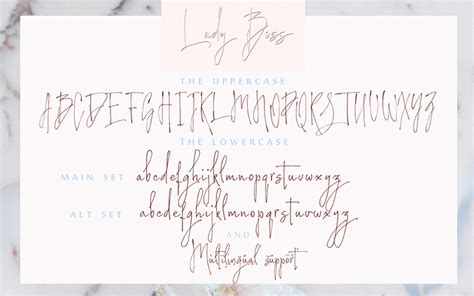 Lady Boss
THE UPPERCASE
ABCDEFGHIJKLMNOPQRSTUVWXYZ
THE LOWERCASE
MAIN SET abcdefghijklmnopqrstuvwxyz
ALT SET abcdefghijklmnopqrstuvwxyz
AND
Múltilingüal šüppört